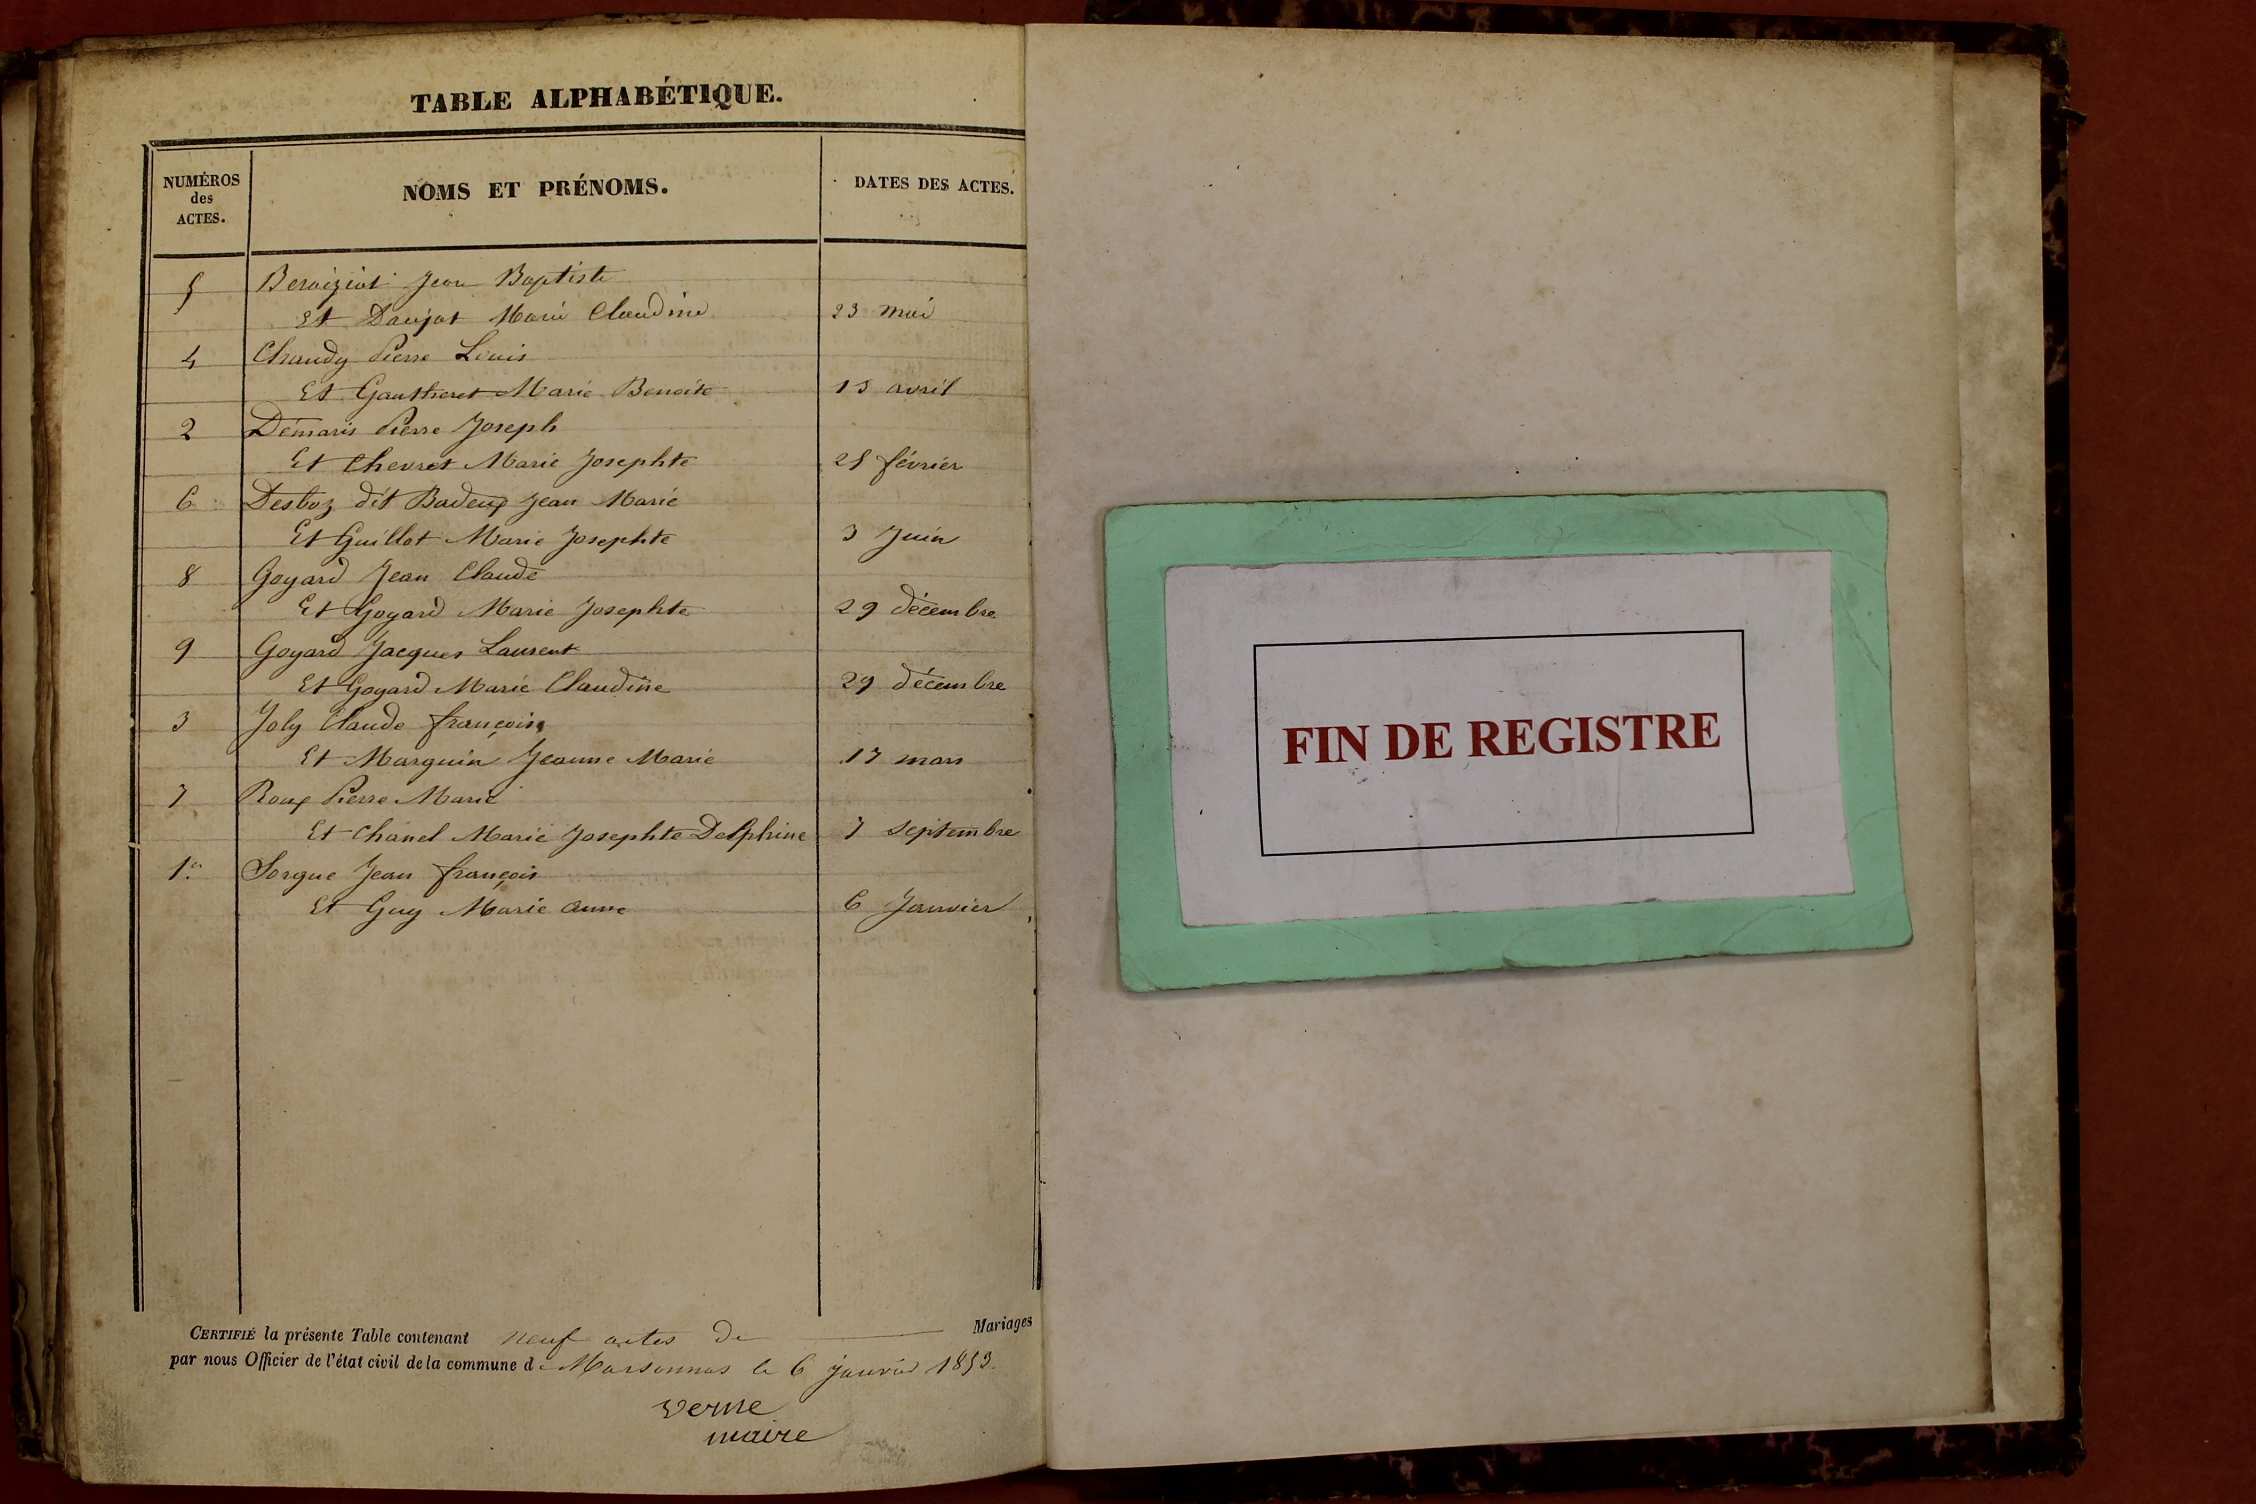 TABLE ALPHABÉTIQUE.
NUMÉROS des ACTES.
NOMS ET PRÉNOMS.
DATES DES ACTES.
5 Jean Baptiste
Et Daujat Marie Claudine 23 mai
4 Chaudy Pierre Louis
Et Gautheret Marie Benoite 15 avril
2 Démaris Pierre Joseph
Et Chevret Marie Josephte 25 février
6 Desboz dit Badeux Jean Marie
Et Guillot Marie Josephte 3 Juin
8 Goyard Jean Claude
Et Goyard Marie Josephte 29 décembre
9 Goyard Jacques Laurent
Et Goyard Marie Claudine 29 décembre
3 Joly Claude françois
Et Marguin Jeanne Marie 17 mars
7 Roux Pierre Marie
Et Chanel Marie Josephte Delphine 7 septembre
1er Sorgue Jean françois
Et Guy Marie anne 6 Janvier
CERTIFIÉ la présente Table contenant neuf actes de Mariages
par nous Officier de l'état civil de la commune de Marsonnas le 6 janvier 1853.
Verne
maire
FIN DE REGISTRE